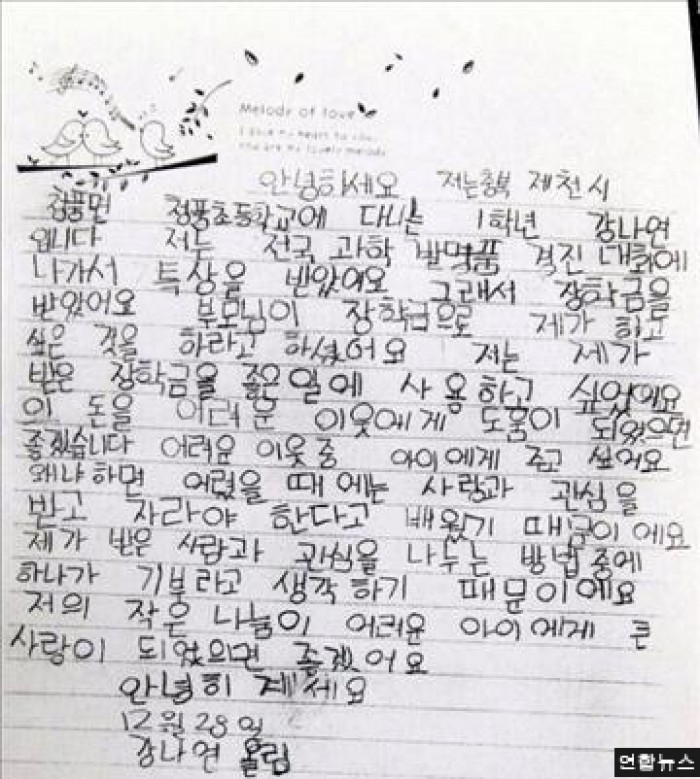 Melody of love
I give my heart to you..
You are my lovely melody
안녕하세요 저는충북 제천시
청풍면 청풍초등학교에 다니는 1학년 강나연
입니다 저는 전국 과학 발명품 격진 대회에
나가서 특상을 받았어요 그래서 장학금을
받았어요 부모님이 장학금으로 제가 하고
싶은 것을 하라고 하셨어요 저는 제가
받은 장학금을 좋은일에 사용하고 싶었어요
이 돈을 어려운 이웃에게 도움이 되었으면
좋겠습니다 어려운 이웃중 아이에게 주고 싶어요
왜냐하면 어렸을 때에는 사랑과 관심을
받고 자라야 한다고 배웠기 때문이에요
제가 받은 사랑과 관심을 나누는 방법중에
하나가 기부라고 생각하기 때문이에요
저의 작은 나눔이 어려운 아이에게 큰
사랑이 되었으면 좋겠어요
안녕히 계세요
12월 28일
강나연 올림
연합뉴스